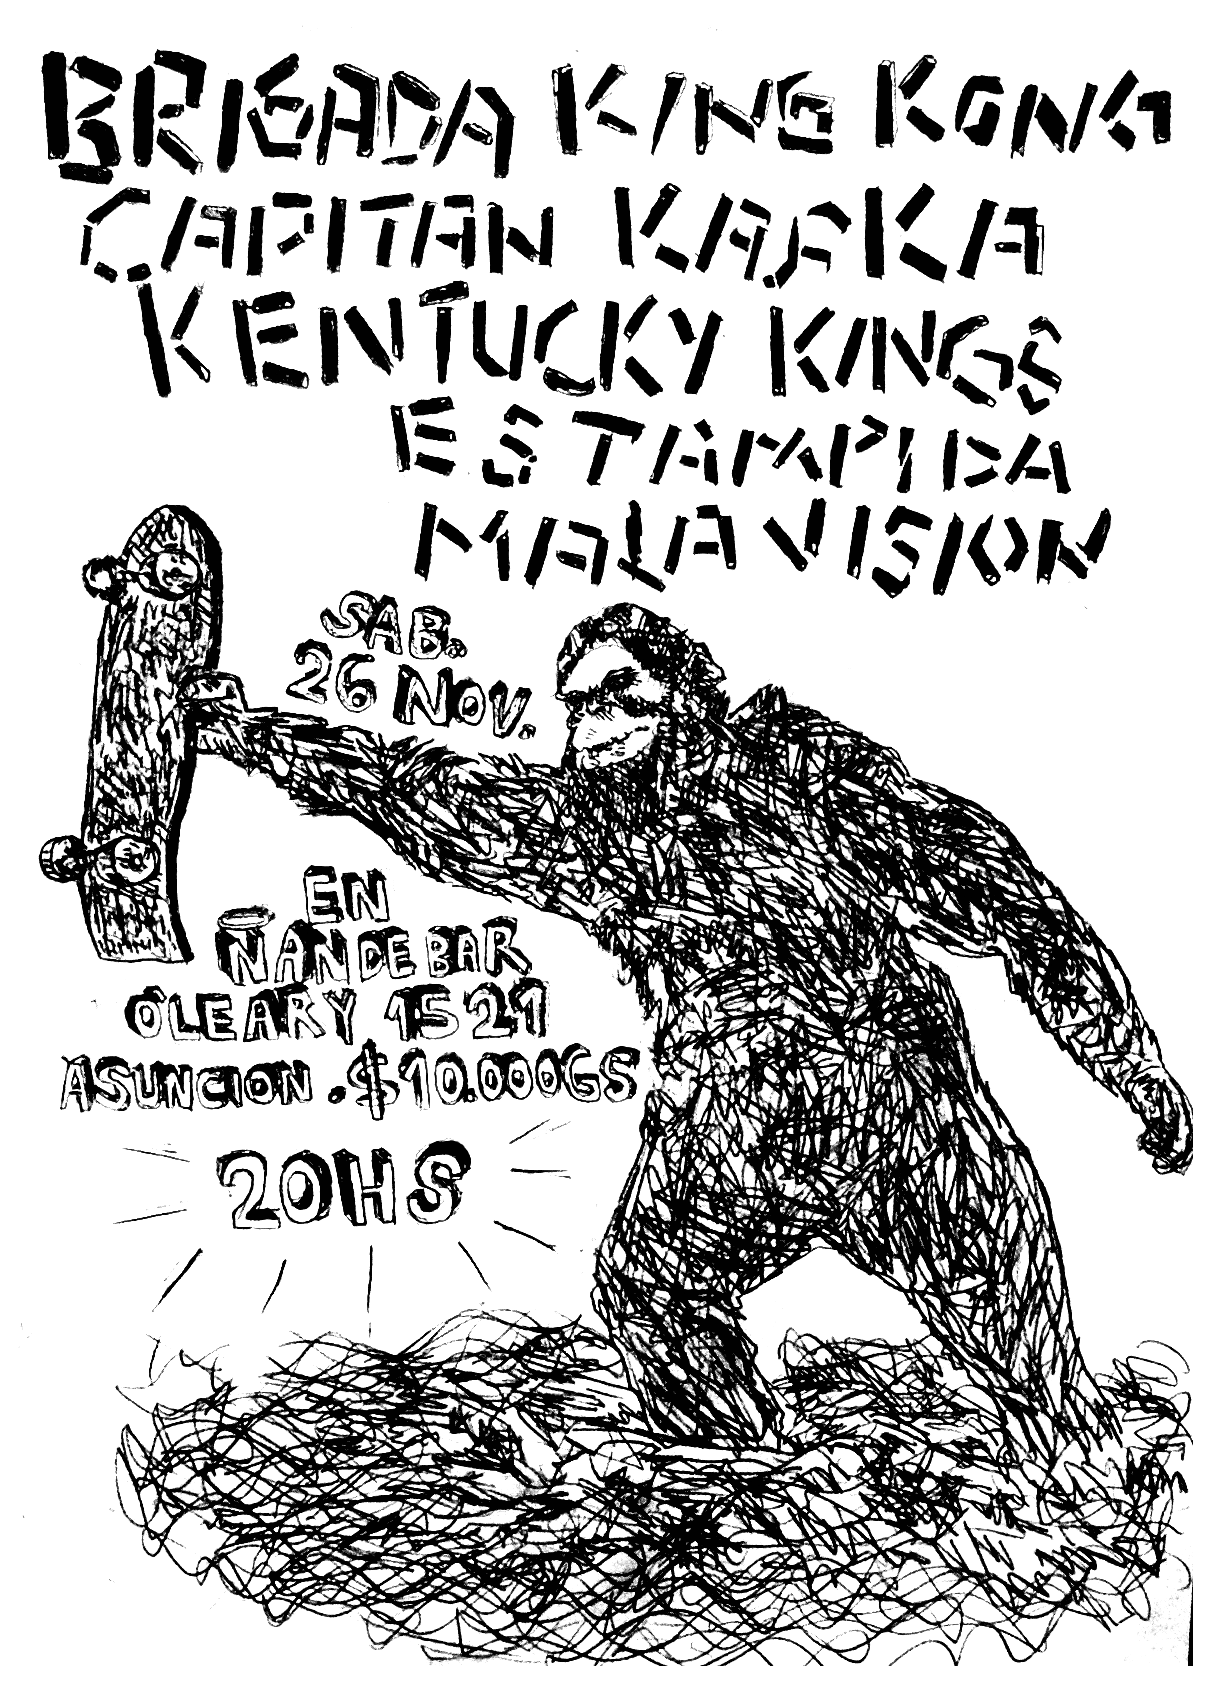 BRIGADA KING KONG
CAPITAN KAFKA
KENTUCKY KINGS
ESTAMPIDA
MALAVISION
SAB.
26 NOV.
EN
ÑANDE BAR
O'LEARY 1521
ASUNCION . $10.000GS
20HS